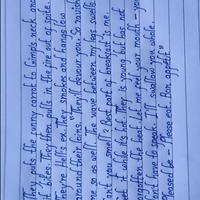 They puts the runny carrot to Gimp's neck and
it bites. They then pulls in the fire out of spite.
They're Hell's ex. They smokes and hangs low
around their loins. They'll devour you. So ravish
me so as well. The wave between my legs swells.
Can't you smell? Best part of breakfast is me.
Get it while it's hot. They is young but has not
forgotten the heat. Let me read your mouth - you
don't have to speak. I'll swallow you whole.
Pleased be - Please eat. Bon appétit"